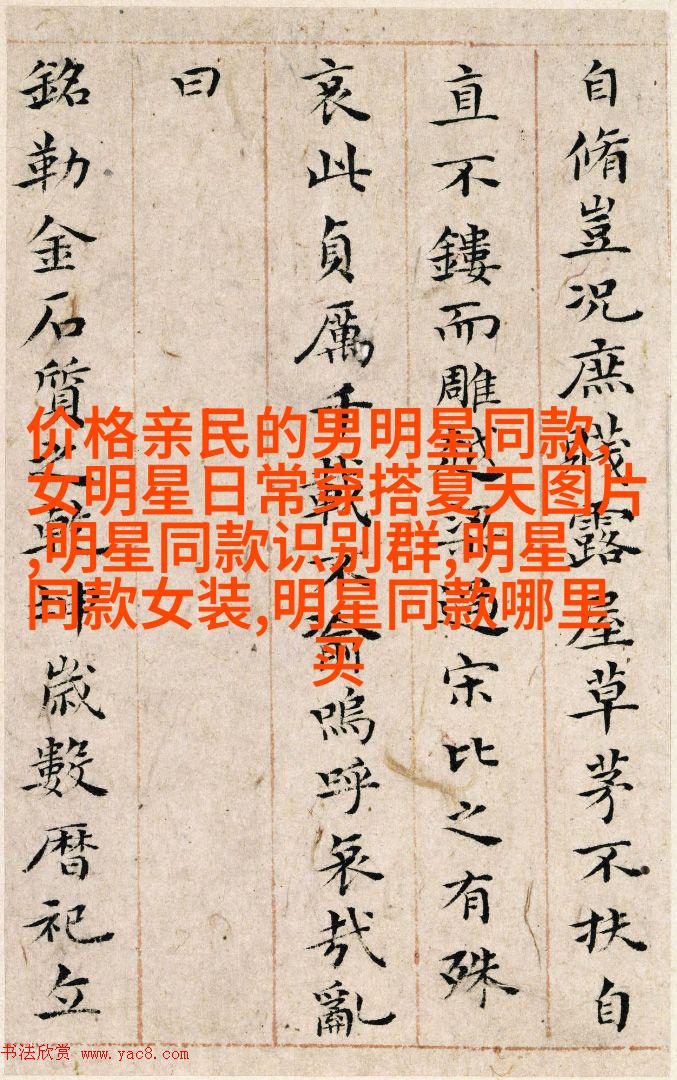 自脩豈況庶賤露屋草茅不扶自
直不鏤而雕越梁過宋比之有殊
哀此貞厲千載不渝嗚呼哀哉亂
曰
銘勒金石質之乾坤歲數曆祀立
价格亲民的男明星同款,
女明星日常穿搭夏天图片
,明星同款识别群,明星
同款女装,明星同款哪里
买
书法欣赏 www.yac8.com